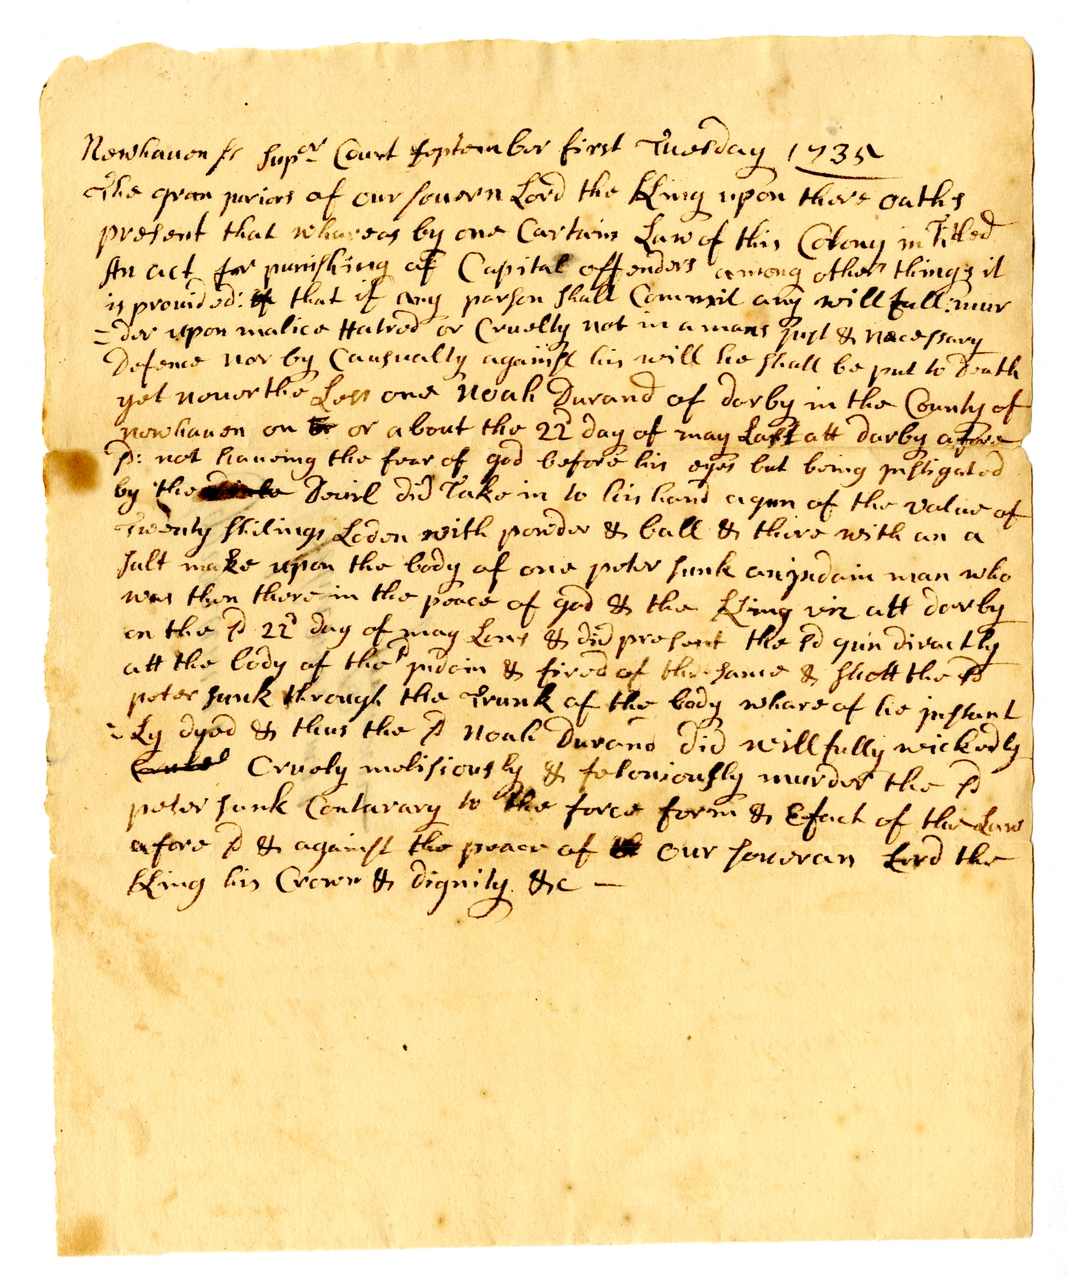 Newhaven ss Supr Court September first Tuesday 1735
The gran juriors of our sovern Lord the King upon there oaths
present that whareas by one Cartain Law of this Colony inTitled
An act for punishing of Capital offenders among other things it
is provided: that if any parson shall Commit any willfull: mur
=der upon malice Hatred or Cruelty not in a mans just & nacessary
Defence nor by Causualty against his will he shall be put to Death
yet neverthe Less one Noah Durand of darby in the County of
newhaven on or about the 22d day of may Last att darby afore
sd: not haveing the fear of god before his eyes but being instigated
by the Devil did Take in to his hand a gun of the value of
Twenty shilings Loden with powder & ball & there with an a
salt make upon the body of one peter sunk an indain man who
was then there in the peace of god & the King viz att darby
on the sd 22d day of may Last & did present the sd gun diractly
att the body of the sd indain & fired of the same & shott the sd
peter sunk through the Trunk of the body whareof he instant
=Ly dyed & thus the sd Noah Durand did willfully wickedly
Cruely melisiously & feloniously murder the sd
peter sunk Contarary to the force form & Efact of the Law
afore sd & against the peace of our soveran Lord the
King his Crown & dignity &c —